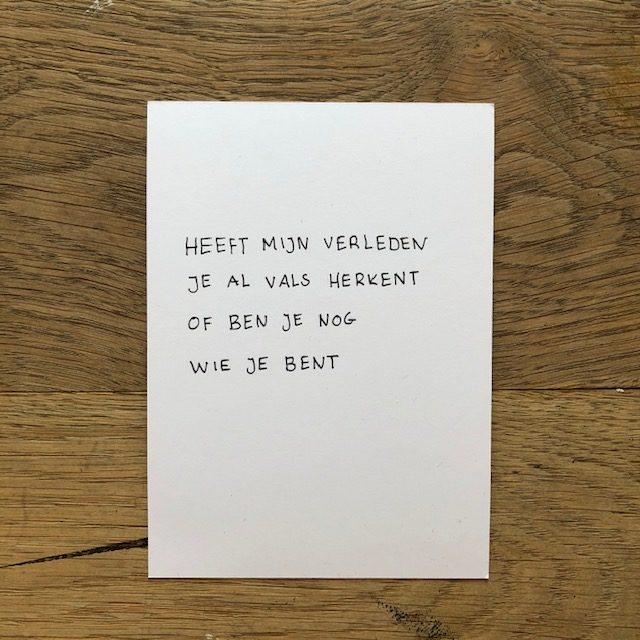 HEEFT MIJN VERLEDEN
JE AL VALS HERKENT
OF BEN JE NOG
WIE JE BENT